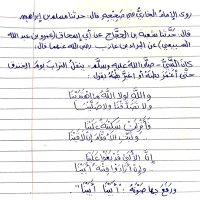 روى الإمامُ البُخاريُّ في صَحيحِهِ قال: حدثنا مسلم بن إبراهيم
قال: حدَّثنا شعبة بن الحجَّاج عن أبي إسحاق (عمرو بن عبد الله
السبيعي) عن البراء بن عازب رضي الله عنهما قال:
كانَ النَّبيُّ - صلَّى الله عليه وسلَّم - ينقُلُ التُّرابَ يومَ الخندقِ
حتَّى أغمَرَ بطنَهُ أو اغبَرَّ بطنُهُ يقول:
والله لولا اللهُ ما اهتدَيْنا
ولا تصَدَّقنا ولا صلَّيْنا
فأنزِلَن سكينةً علَينا
وثبِّتِ الأقدامَ إن لاقَيْنا
إنَّ الأُلى قد بغَوا علَينا
إذا أرادوا فِتنةً أبَيْنا
ورفَعَ بها صوْتَهُ: "أبَيْنا أبَيْنا".